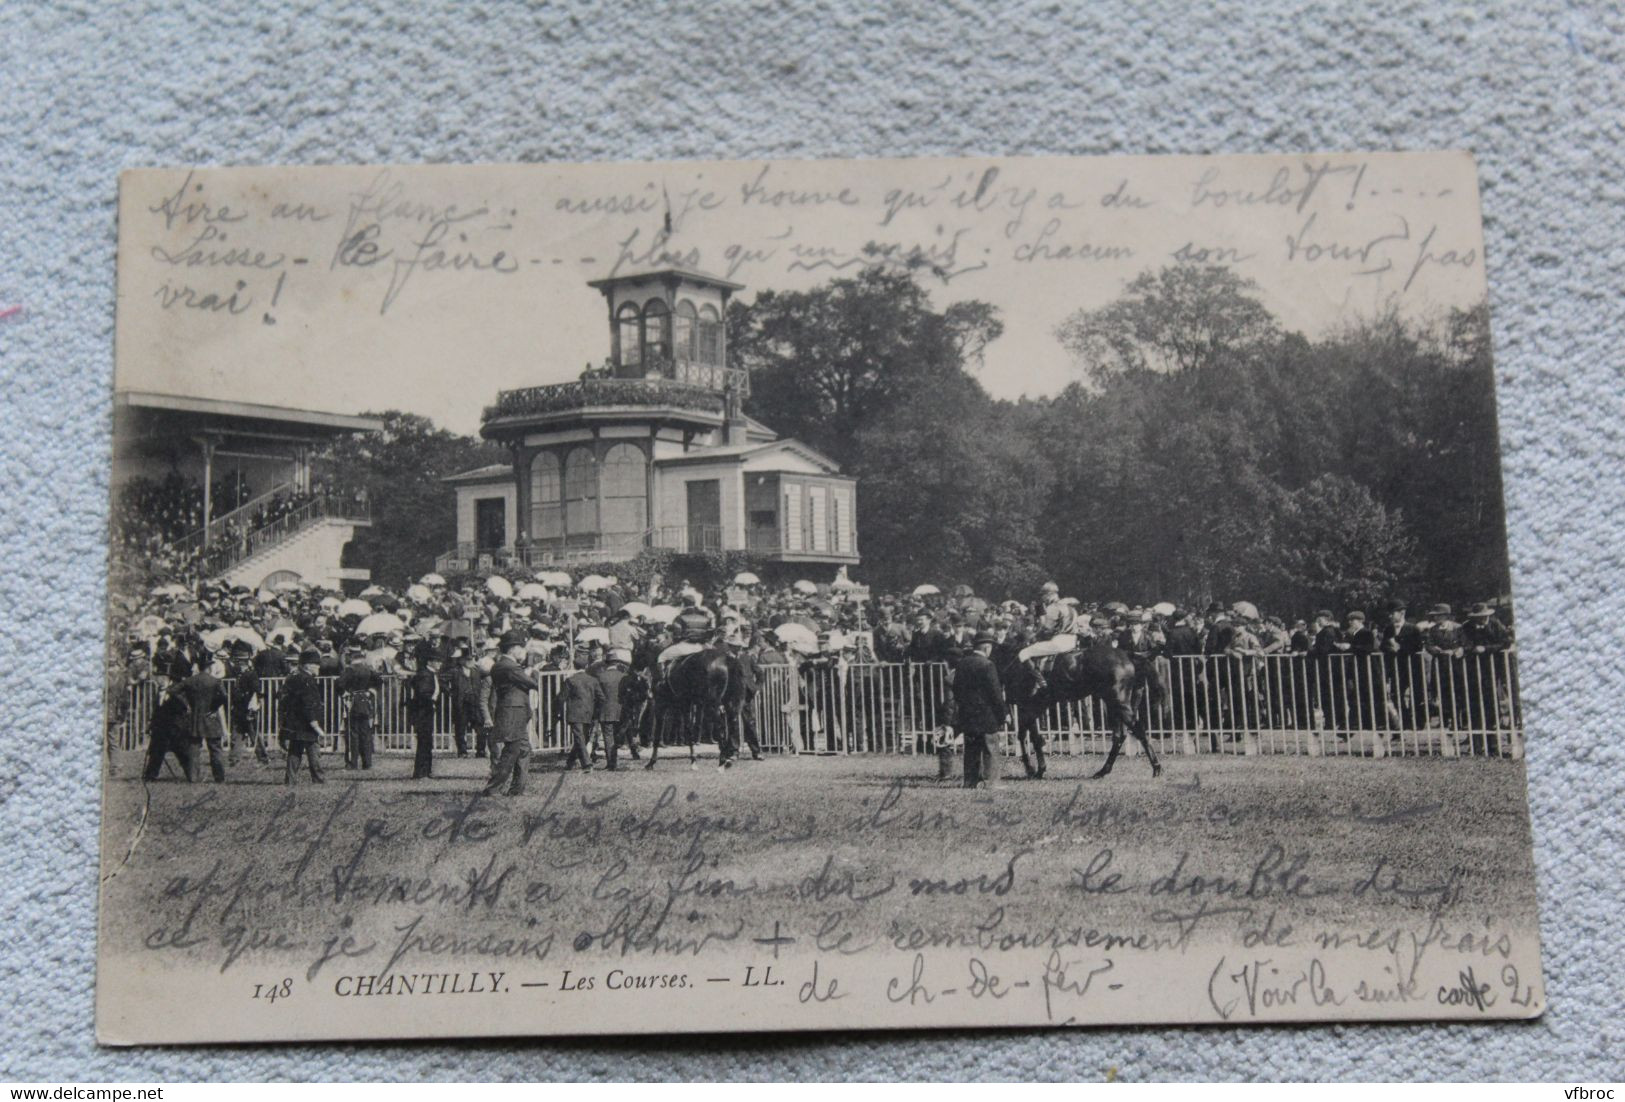 tire au flanc. aussi je trouve qu'il y a du boulot!....
Laisse-le faire... plus qu'un mois. chacun son tour, pas
vrai!
Le chef a été très chique, il m'a donné comme
appointements à la fin du mois le double de
ce que je pensais obtenir + le remboursement de mes frais
148 CHANTILLY. — Les Courses. — LL. de ch-de-fer - (Voir la suite carte 2.
delcampe.net
vfbroc